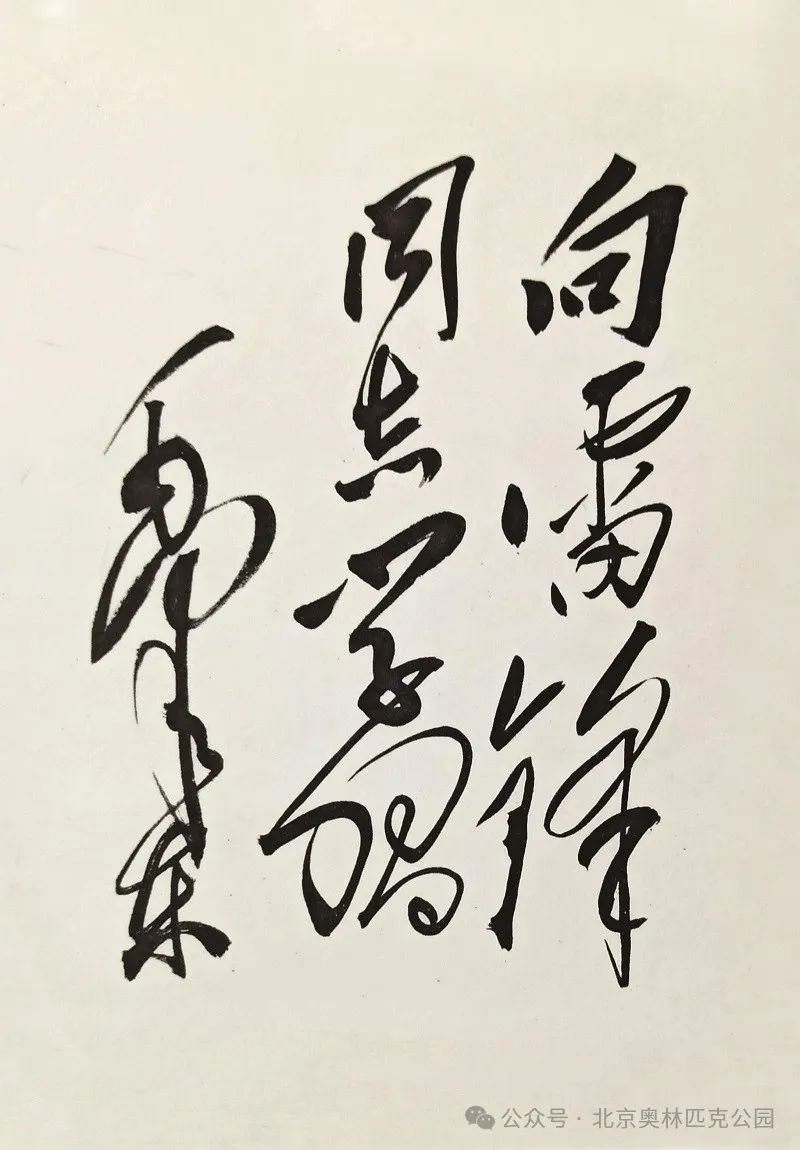 向雷锋
同志学习
毛泽东
公众号 · 北京奥林匹克公园